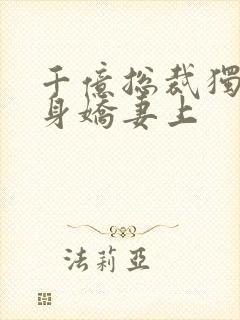 千億总裁獨
身嬌妻上
法莉亞